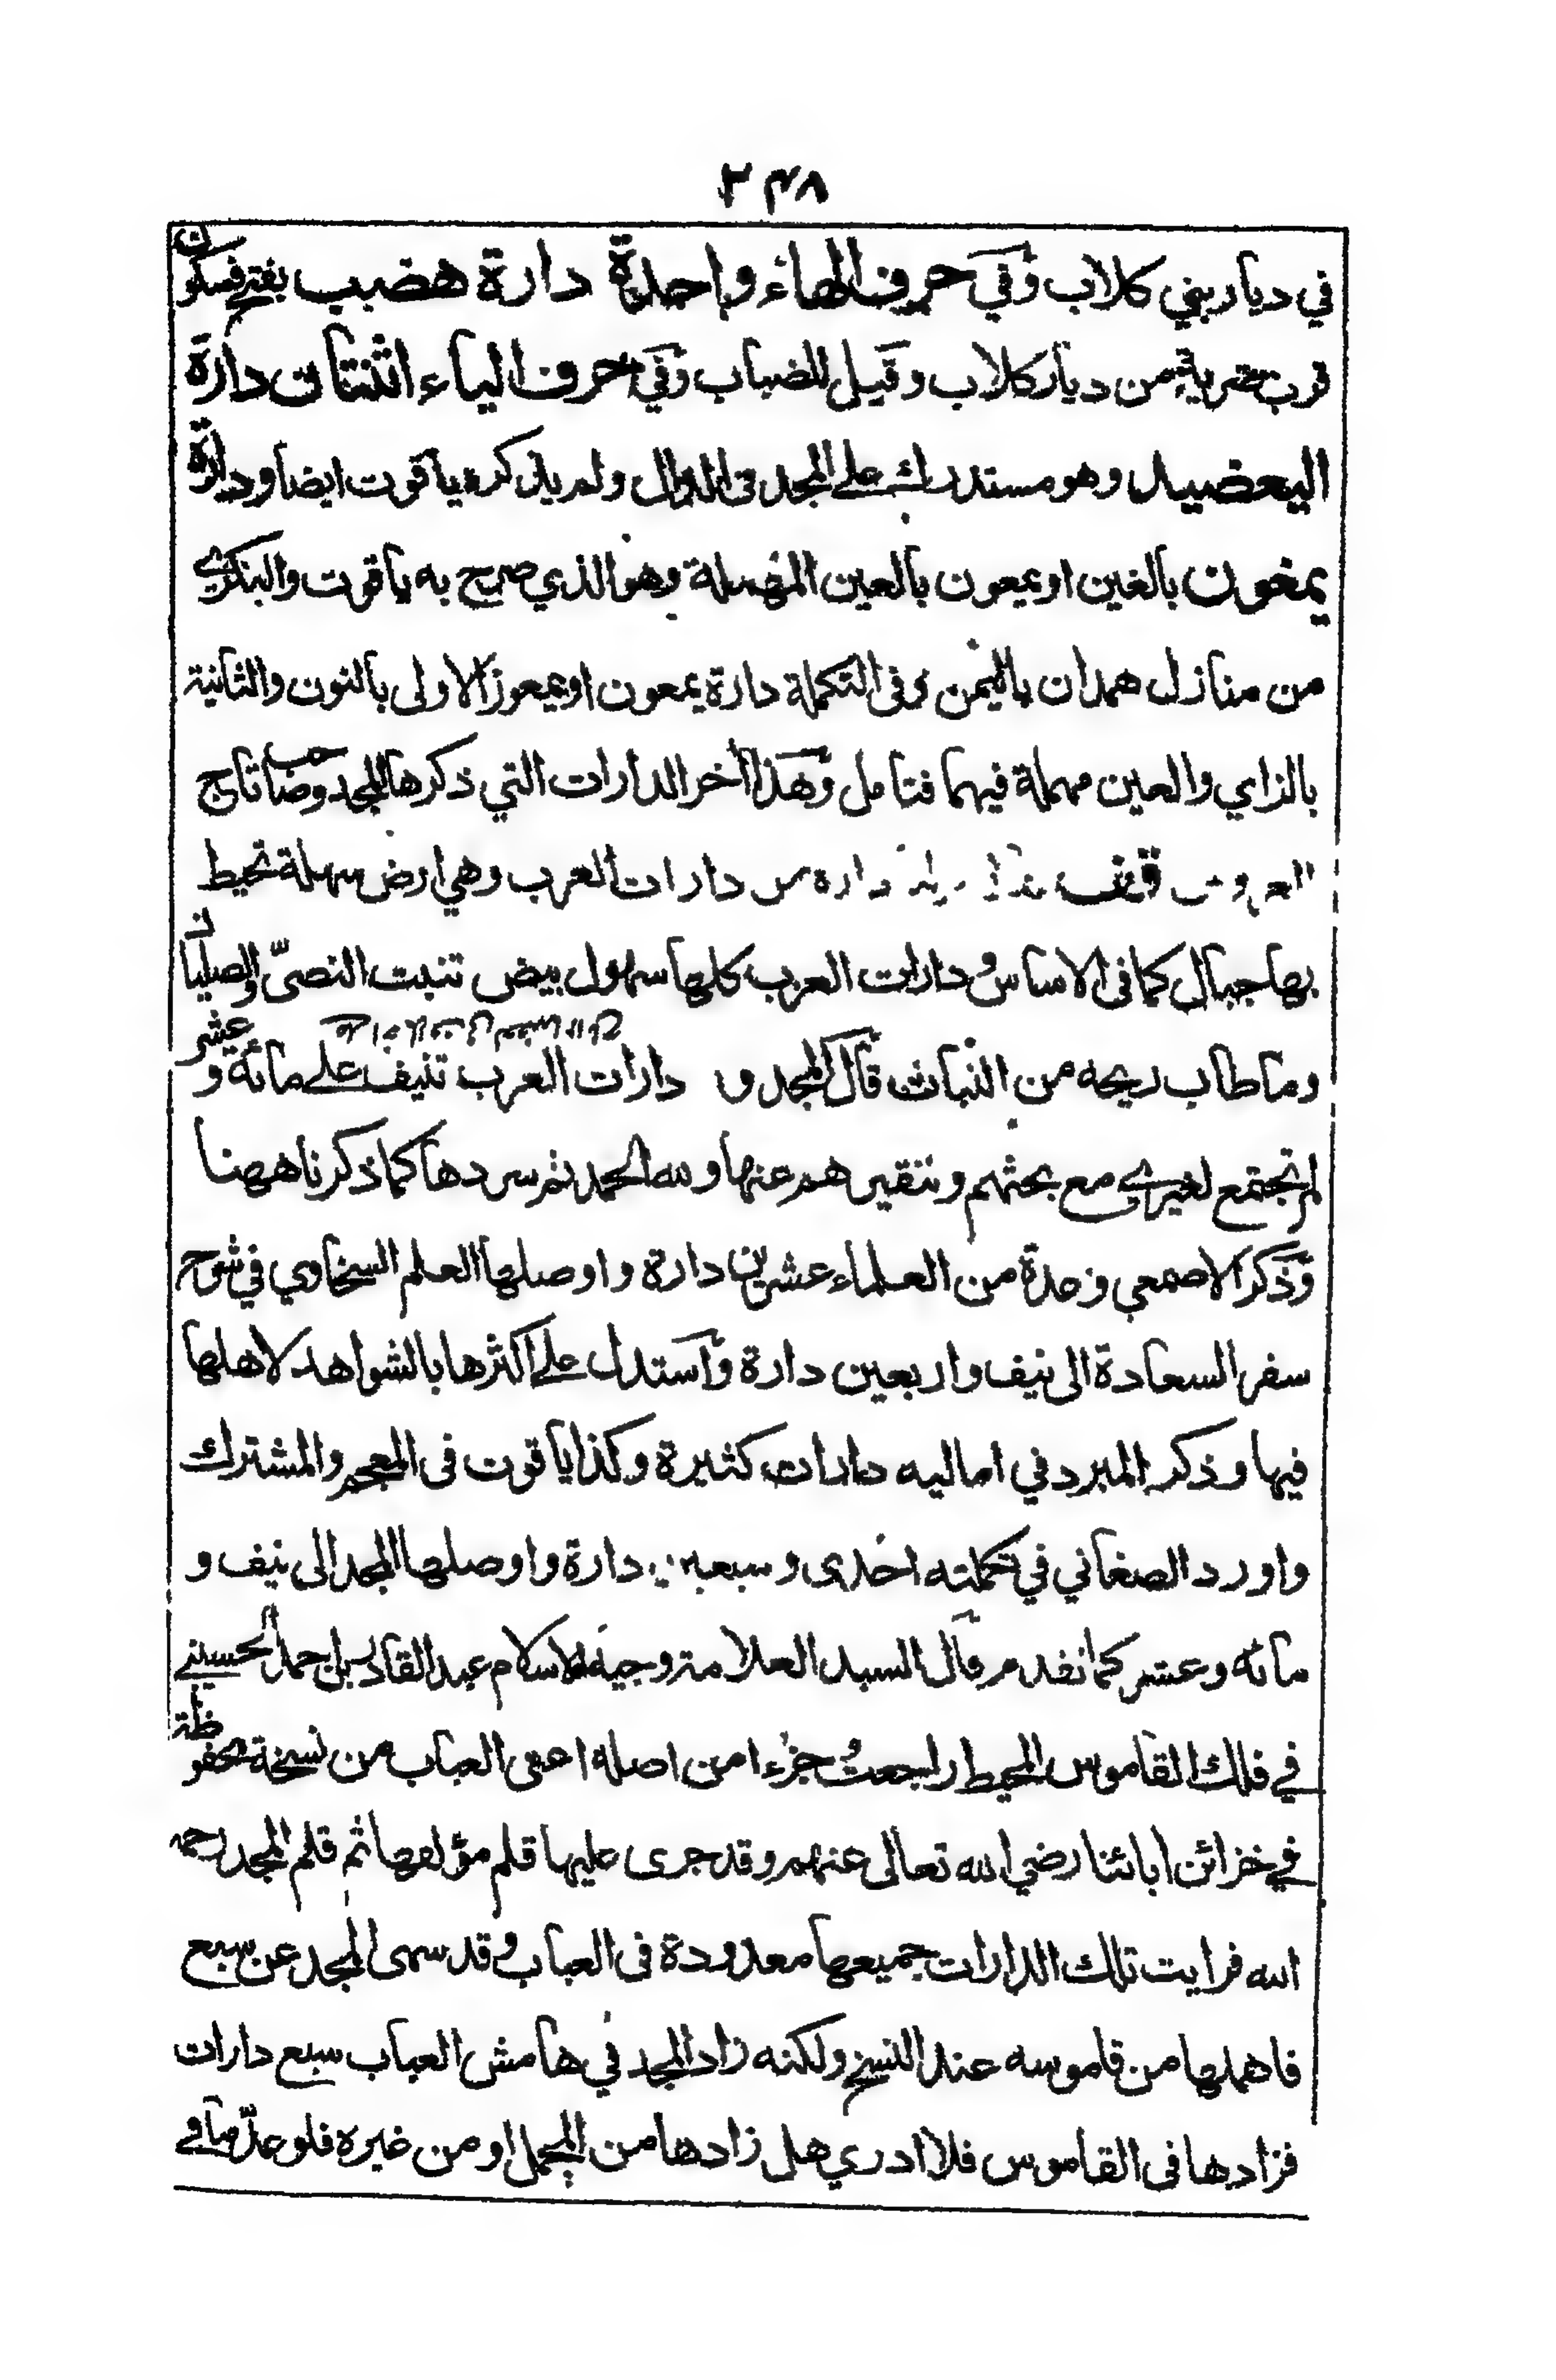 ٢٤٨
في ديار بني كلاب وفي حرف الهاء واحدة دارة هضب بفتح فسكون
قرب ضرية من ديار كلاب وقيل للضباب وفي حرف الياء اثنتان دارة
اليعضيد وهو مستدرك على المجد في الدال ولم يذكره ياقوت ايضا ودارة
يمغون بالغين او يمعون بالعين المهملة وهو الذي صرح به ياقوت والبكري
من منازل همدان باليمن وفى التكملة دارة يمعون او يمعوز الاولى بالنون والثانية
بالزاي والعين مهملة فيهما فتامل وهذا آخر الدارات التي ذكرها المجد وصاحب تاج
العروس دارة من دارات العرب وهي ارض سهلة تحيط
بها جبال كما فى الاساس ودارات العرب كلها سهول بيض تنبت النصىّ والصليان
وما طاب ريحه من النبات قال المجد و دارات العرب تنيف على مائة وعشر
لم تجتمع لغيرى مع بحثهم وتنقيرهم عنها ولله الحمد ثم سردها كما ذكرنا ههنا
وذكر الاصمعي وعدة من العلماء عشرين دارة واوصلها العلم السخاوي في شرح
سفر السعادة الى نيف واربعين دارة واستدل على اكثرها بالشواهد لاهلها
فيها وذكر المبرد في اماليه دارات كثيرة وكذا ياقوت فى المعجم والمشترك
واورد الصغاني في تكملته احدى وسبعين دارة واوصلها المجد الى نيف و
مائه وعشر كما تقدم قال السيد العلامة وجيه الاسلام عبد القادر بن احمد الحسيني
في فلك القاموس المحيط راجعت جزءا من اصله اعنى العباب من نسخة محفوظة
في خزائن ابائنا رضي الله تعالى عنهم وقد جرى عليها قلم مؤلفها ثم قلم المجد رحمه
الله فرايت تلك الدارات جميعها معدودة فى العباب وقد سمى المجد عن سبع
فاهملها من قاموسه عند النسخ ولكنه زاد المجد في هامش العباب سبع دارات
فزادها فى القاموس فلا ادري هل زادها من المجمل او من غيره فلو عدّ ما في